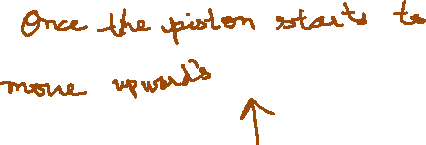 Once the piston starts to
move upwards